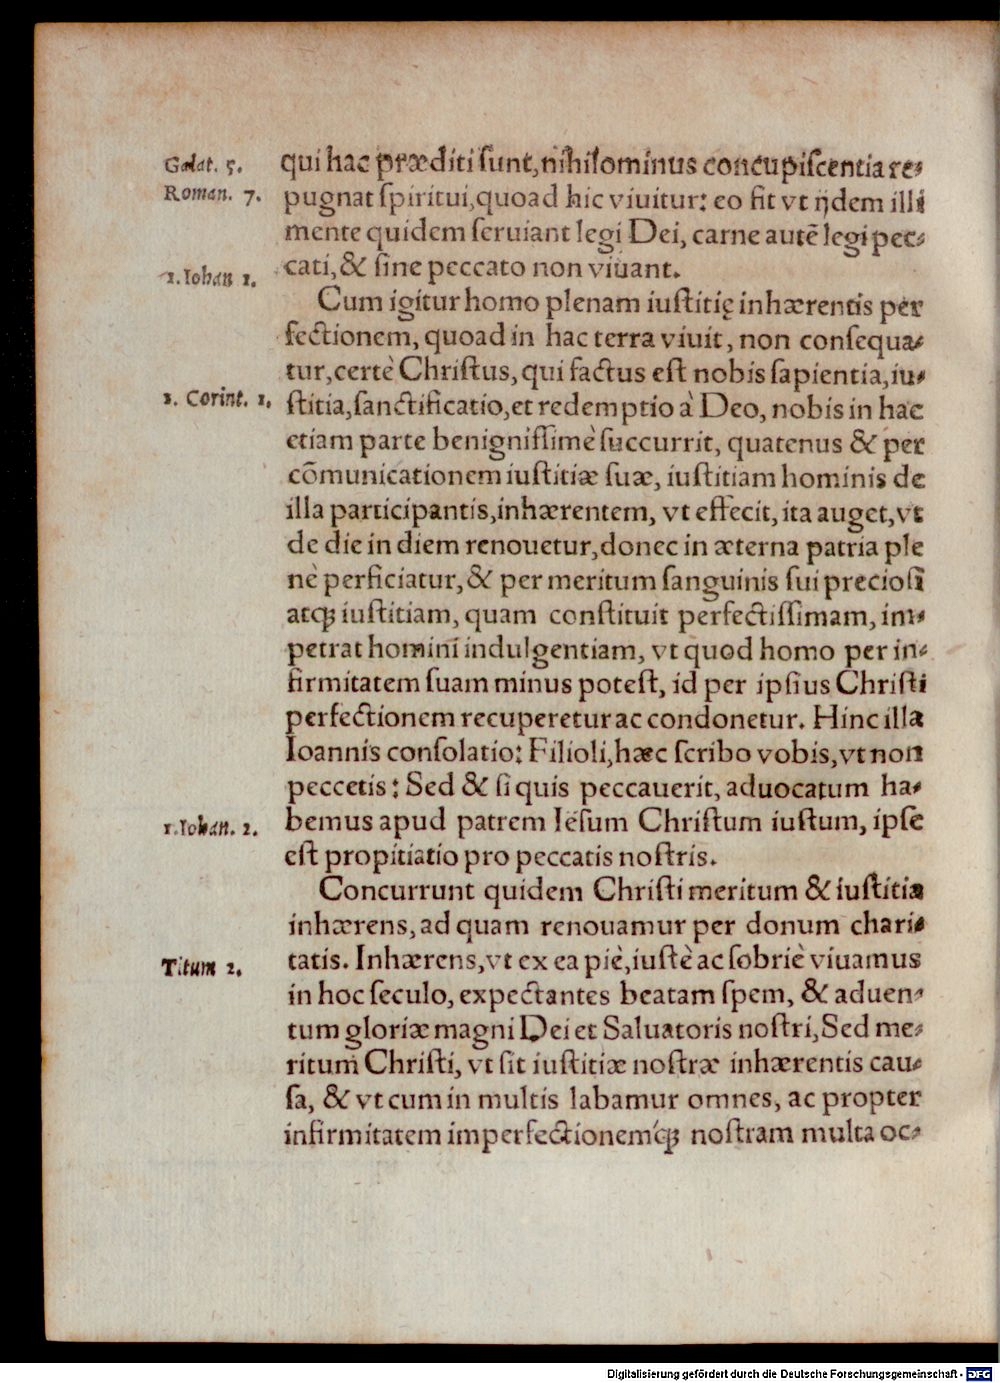 Galat. 5.
Roman. 7.
1. Iohan 1.
1. Corint. 1.
1. Iohan. 2.
Titum 2.
qui hac præditi ſunt, nihilominus concupiſcentia re-
pugnat ſpiritui, quoad hic viuitur: eo fit vt ijdem illi
mente quidem ſeruiant legi Dei, carne autẽ legi pec-
cati, & ſine peccato non viuant.
Cum igitur homo plenam iuſtitię inhærentis per
fectionem, quoad in hac terra viuit, non conſequa-
tur, certè Chriſtus, qui factus eſt nobis ſapientia, iu-
ſtitia, ſanctificatio, et redemptio à Deo, nobis in hac
etiam parte benigniſſimè ſuccurrit, quatenus & per
cõmunicationem iuſtitiæ ſuæ, iuſtitiam hominis de
illa participantis, inhærentem, vt effecit, ita auget, vt
de die in diem renouetur, donec in æterna patria ple
nè perficiatur, & per meritum ſanguinis ſui precioſi
atq; iuſtitiam, quam conſtituit perfectiſſimam, im-
petrat homini indulgentiam, vt quod homo per in-
firmitatem ſuam minus poteſt, id per ipſius Chriſti
perfectionem recuperetur ac condonetur. Hinc illa
Ioannis conſolatio: Filioli, hæc ſcribo vobis, vt non
peccetis: Sed & ſi quis peccauerit, aduocatum ha-
bemus apud patrem Ieſum Chriſtum iuſtum, ipſe
eſt propitiatio pro peccatis noſtris.
Concurrunt quidem Chriſti meritum & iuſtitia
inhærens, ad quam renouamur per donum chari-
tatis. Inhærens, vt ex ea piè, iuſtè ac ſobriè viuamus
in hoc ſeculo, expectantes beatam ſpem, & aduen-
tum gloriæ magni Dei et Saluatoris noſtri, Sed me-
ritum Chriſti, vt ſit iuſtitiæ noſtræ inhærentis cau-
ſa, & vt cum in multis labamur omnes, ac propter
infirmitatem imperfectionemq́; noſtram multa oc-
Digitalisierung gefördert durch die Deutsche Forschungsgemeinschaft - DFG